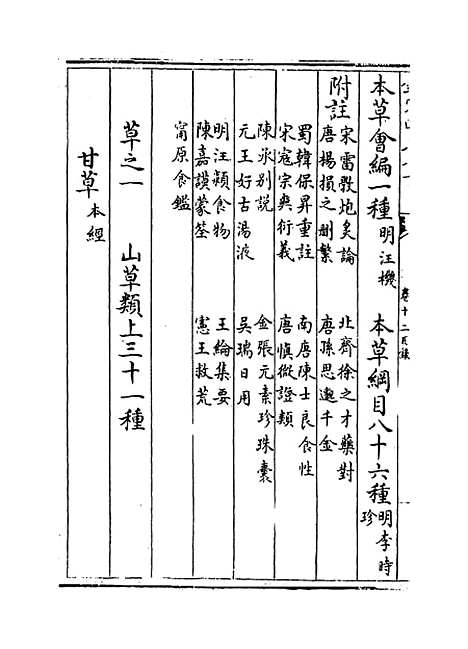 本草會編一種明汪機　本草綱目八十六種明李時珍
附註宋雷斆炮炙論　北齊徐之才藥對
唐楊損之刪繁　唐孫思邈千金
蜀韓保昇重註　南唐陳士良食性
宋寇宗奭衍義　唐慎微證類
陳承别說　金張元素珍珠囊
元王好古湯液　吳瑞日用
明汪穎食物　王綸集要
陳嘉謨蒙筌　憲王救荒
甯原食鑑
草之一　山草類上三十一種
甘草本經
卷十二目錄